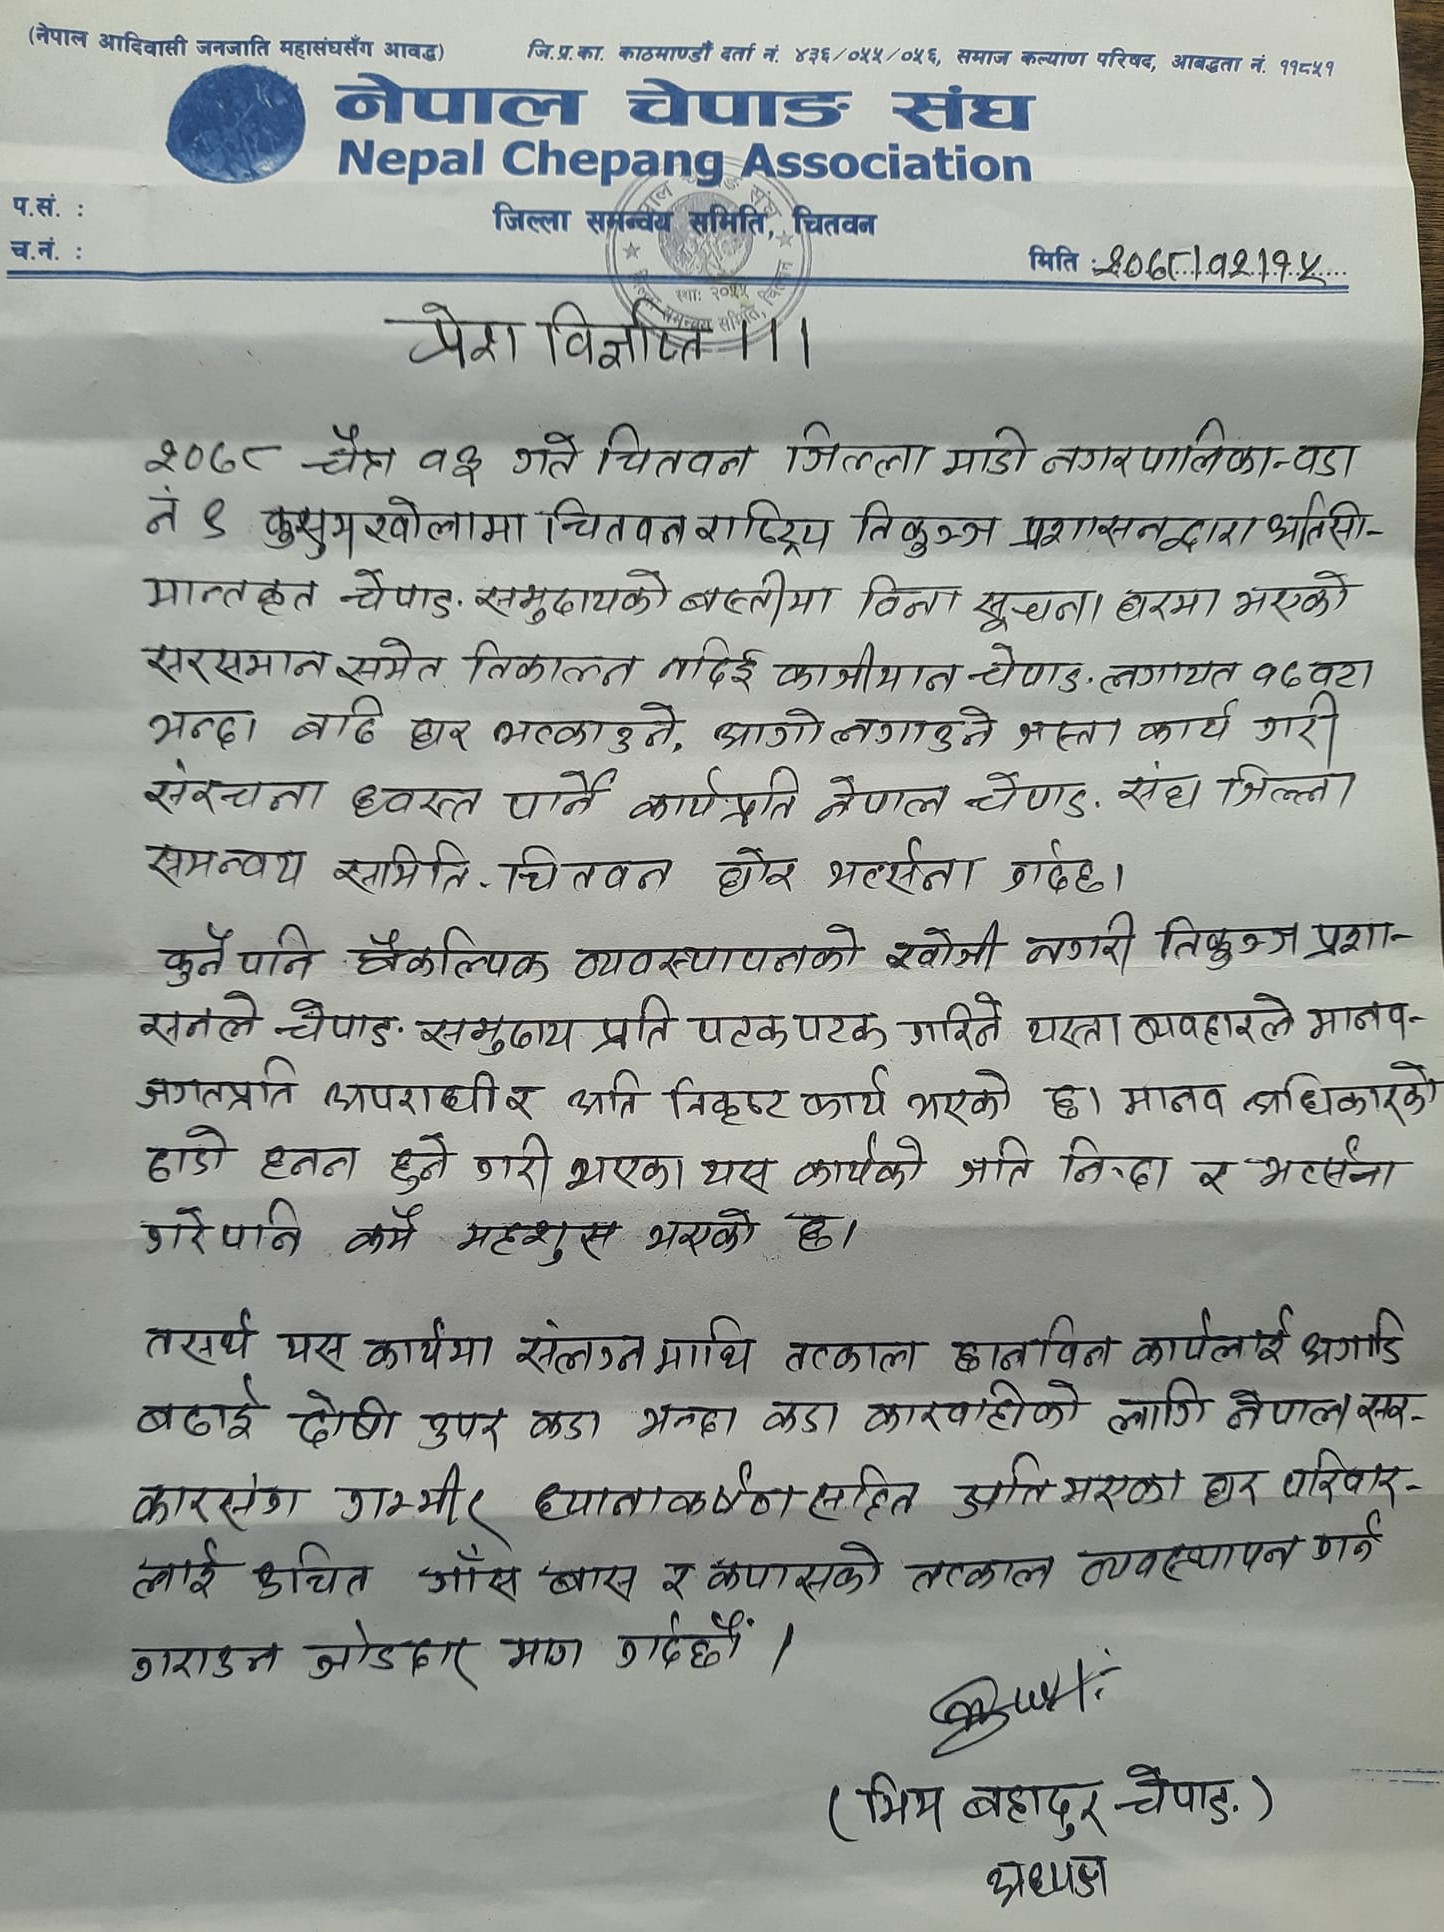 (नेपाल आदिवासी जनजाति महासंघसँग आवद्ध)
जि.प्र.का. काठमाण्डौं दर्ता नं. ४३६/०५५/०५६, समाज कल्याण परिषद, आबद्धता नं. ११८५१
नेपाल चेपाङ संघ
Nepal Chepang Association
प.सं. :
जिल्ला समन्वय समिति, चितवन
च.नं. :
मिति : २०७८।१२।१५
स्था: २०५५
प्रेस विज्ञप्ति ।।।
२०७८ चैत्र १३ गते चितवन जिल्ला माडी नगरपालिका-वडा
नं ९ कुसुमखोलामा चितवन राष्ट्रिय निकुञ्ज प्रशासनद्वारा अतिसी-
मान्तकृत चेपाङ समुदायको बस्तीमा विना सूचना घरमा भएको
सरसमान समेत निकाल्न नदिई काजीमान चेपाङ लगायत १६ वटा
भन्दा बढि घर भत्काउने, आगो लगाउने जस्ता कार्य गरी
संरचना ध्वस्त पार्ने कार्यप्रति नेपाल चेपाङ संघ जिल्ला
समन्वय समिति-चितवन घोर भर्त्सना गर्दछ।
कुनै पनि वैकल्पिक व्यवस्थापनको खोजी नगरी निकुञ्ज प्रशा-
सनले चेपाङ समुदाय प्रति पटक पटक गरिने यस्ता व्यवहारले मानव-
जगतप्रति अपराधी र अति निकृष्ट कार्य भएको छ। मानव अधिकारको
ठाडो हनन हुने गरी भएका यस कार्यको जति निन्दा र भर्त्सना
गरे पनि कमै महशुस भएको छ।
तसर्थ यस कार्यमा संलग्न माथि तत्काल छानविन कार्यलाई अगाडि
बढाई दोषी उपर कडा भन्दा कडा कारवाहीको लागि नेपाल सर-
कारसंग गम्भीर ध्यानाकर्षण सहित क्षति भएका घर परिवार-
लाई उचित गाँस बास र कपासको तत्काल व्यवस्थापन गर्न
गराउन जोडदार माग गर्दछौं ।
(भिम बहादुर चेपाङ)
अध्यक्ष